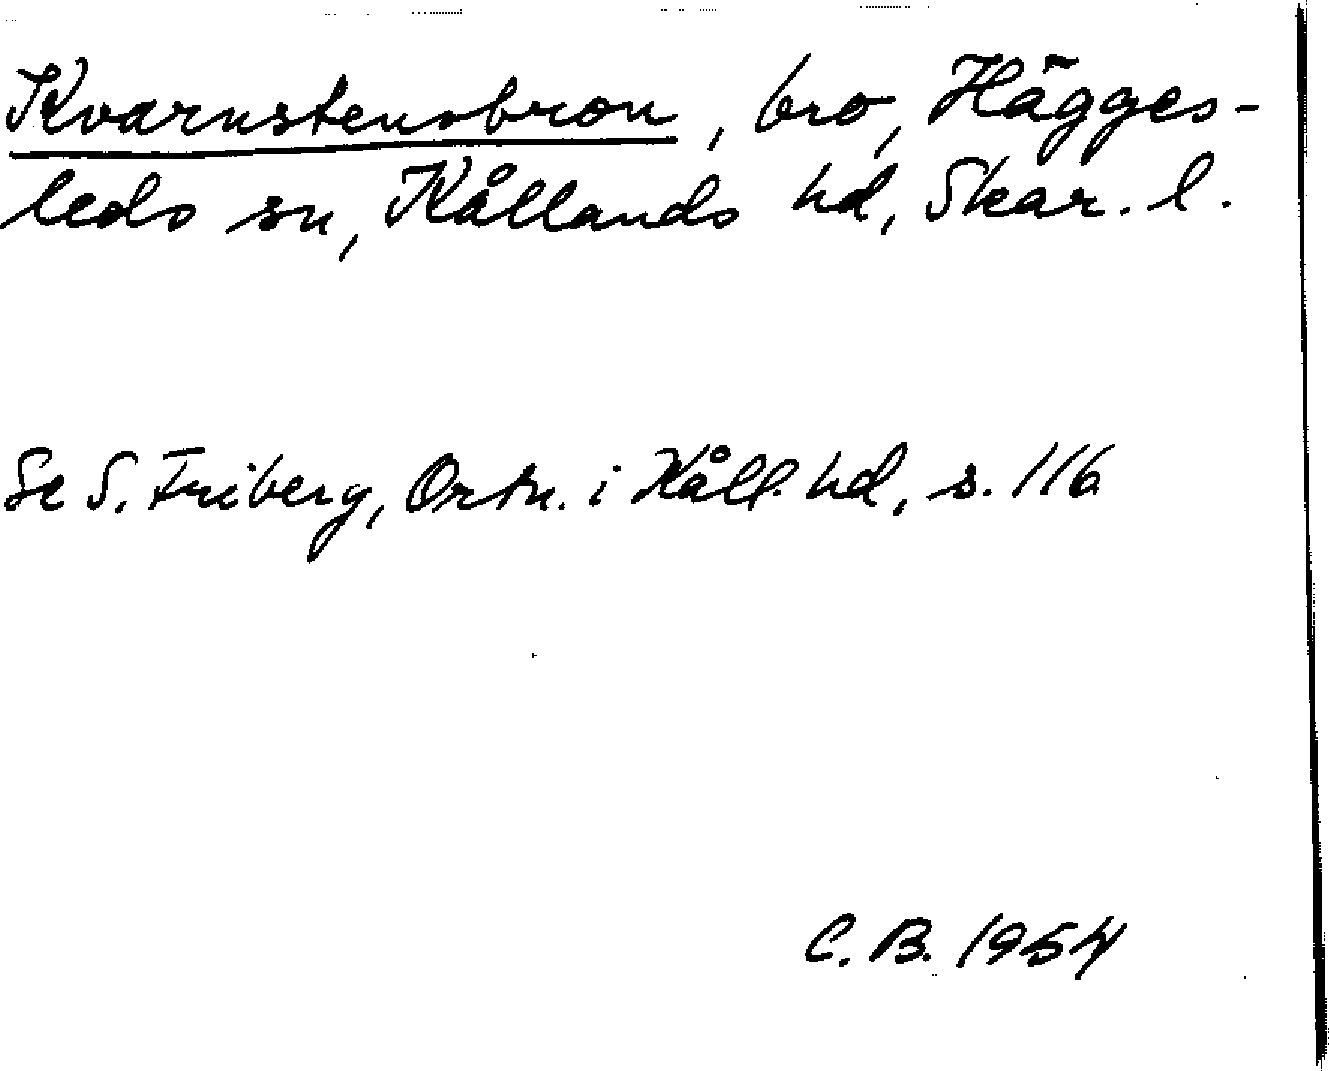 Kvarnstensbron, bro, Hägges-
leds sn, Kållands hd, Skar. l.
Se S. Friberg, Ortn. i Kåll. hd, s. 116
C. B. 1954